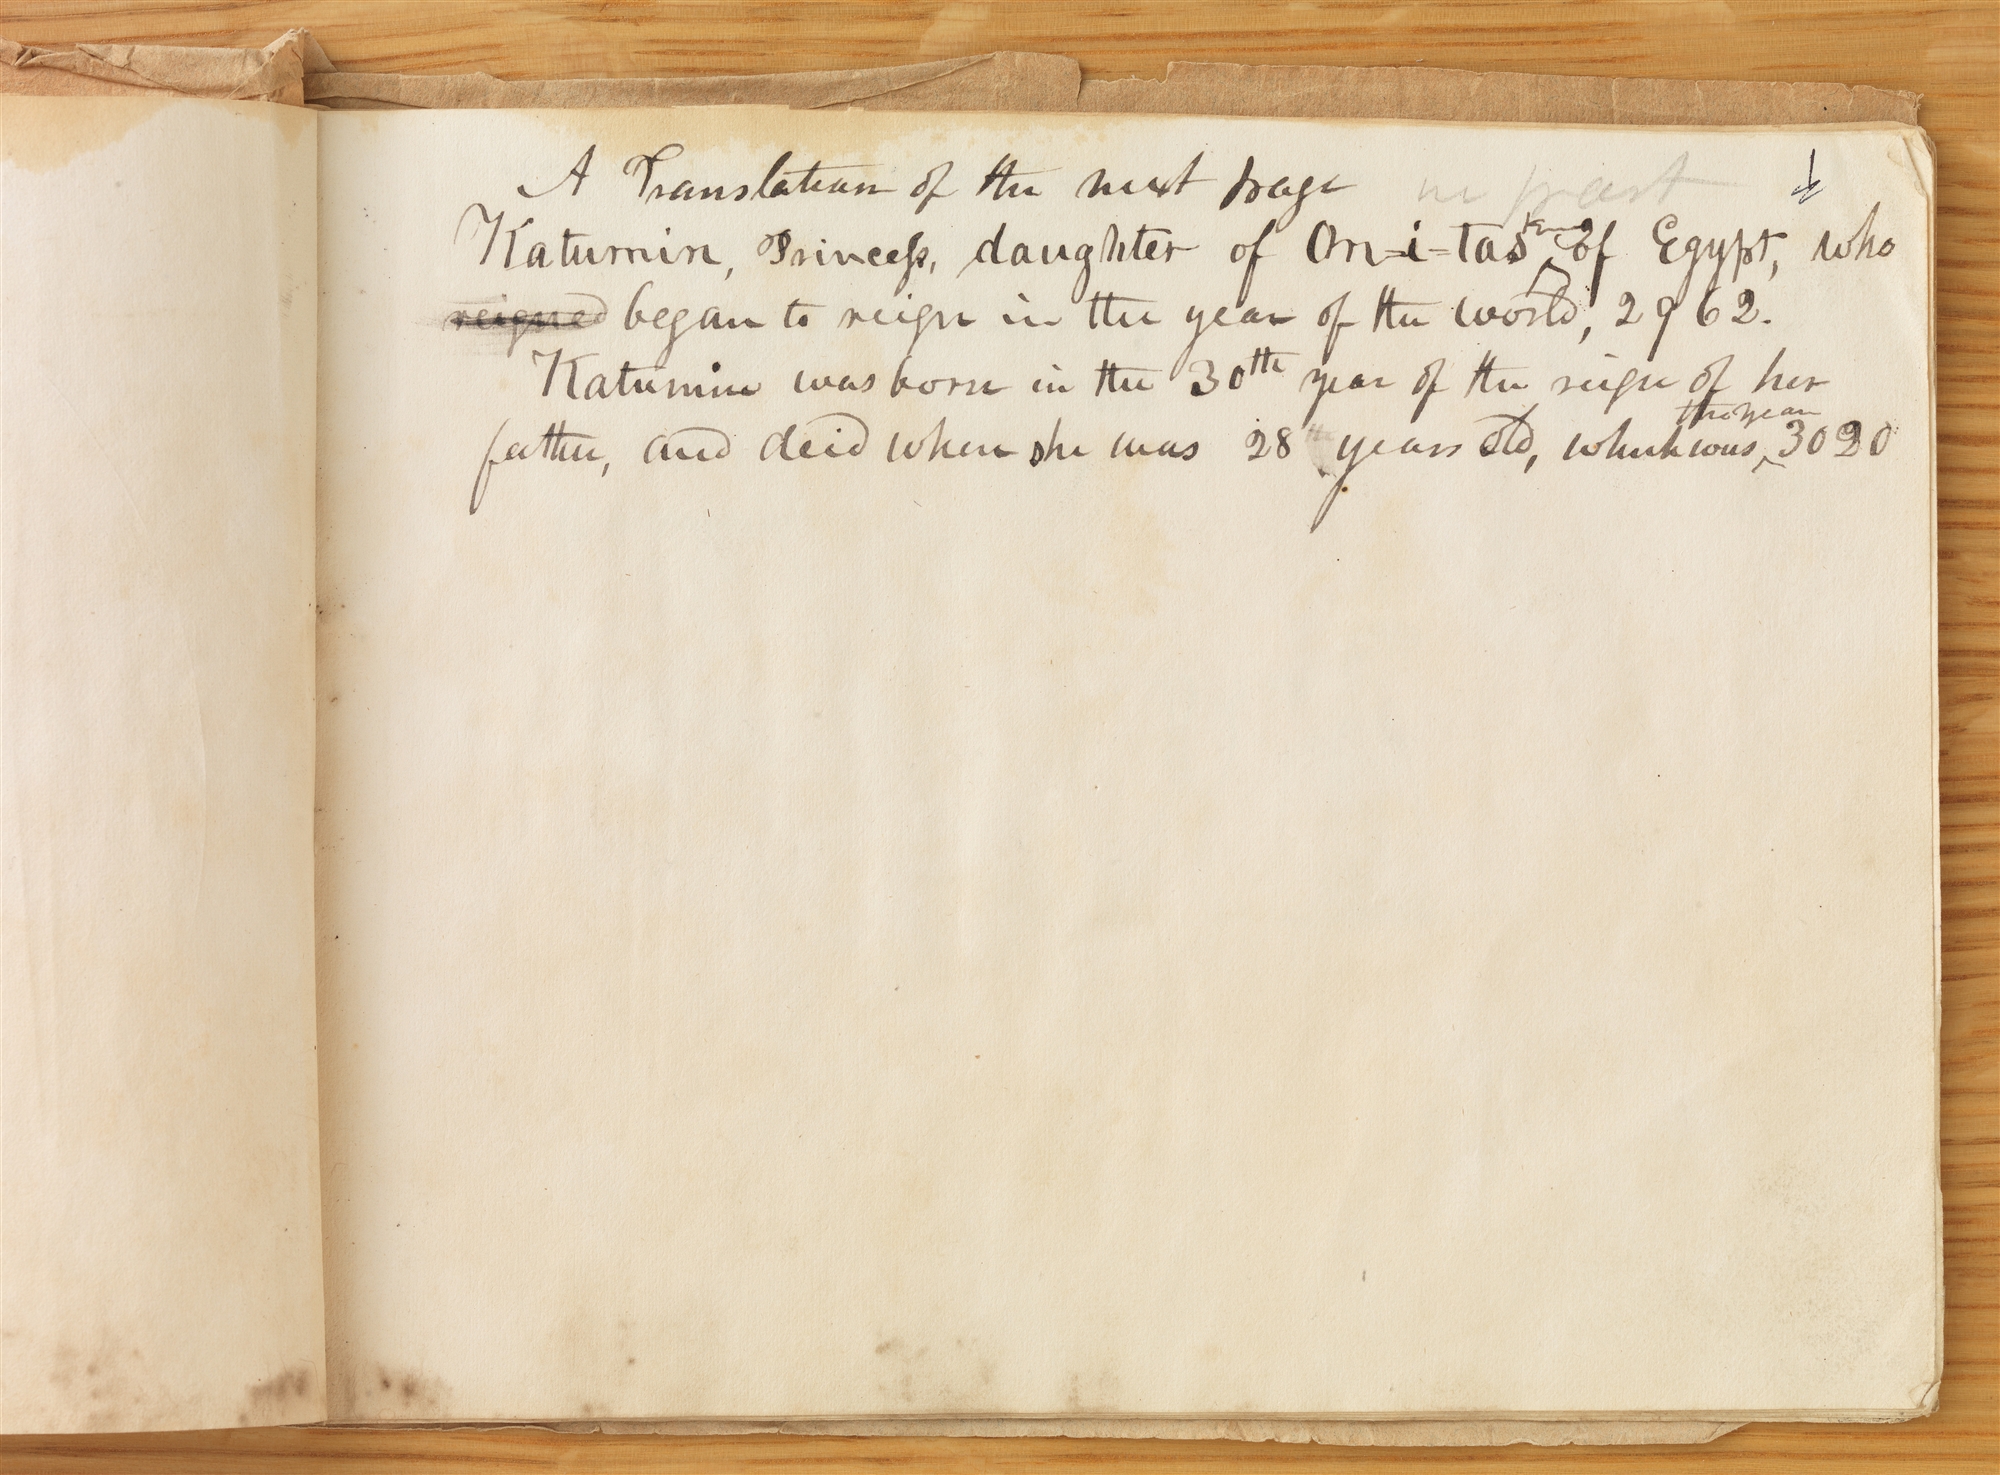 A Translation of the next page in part
Katumin, Princess, daughter of On-i-tas King of Egypt, who
reigned began to reign in the year of the world, 2962.
Katumin was born in the 30th year of the reign of her
father, and deid when she was 28 years old, which was, the year 3020